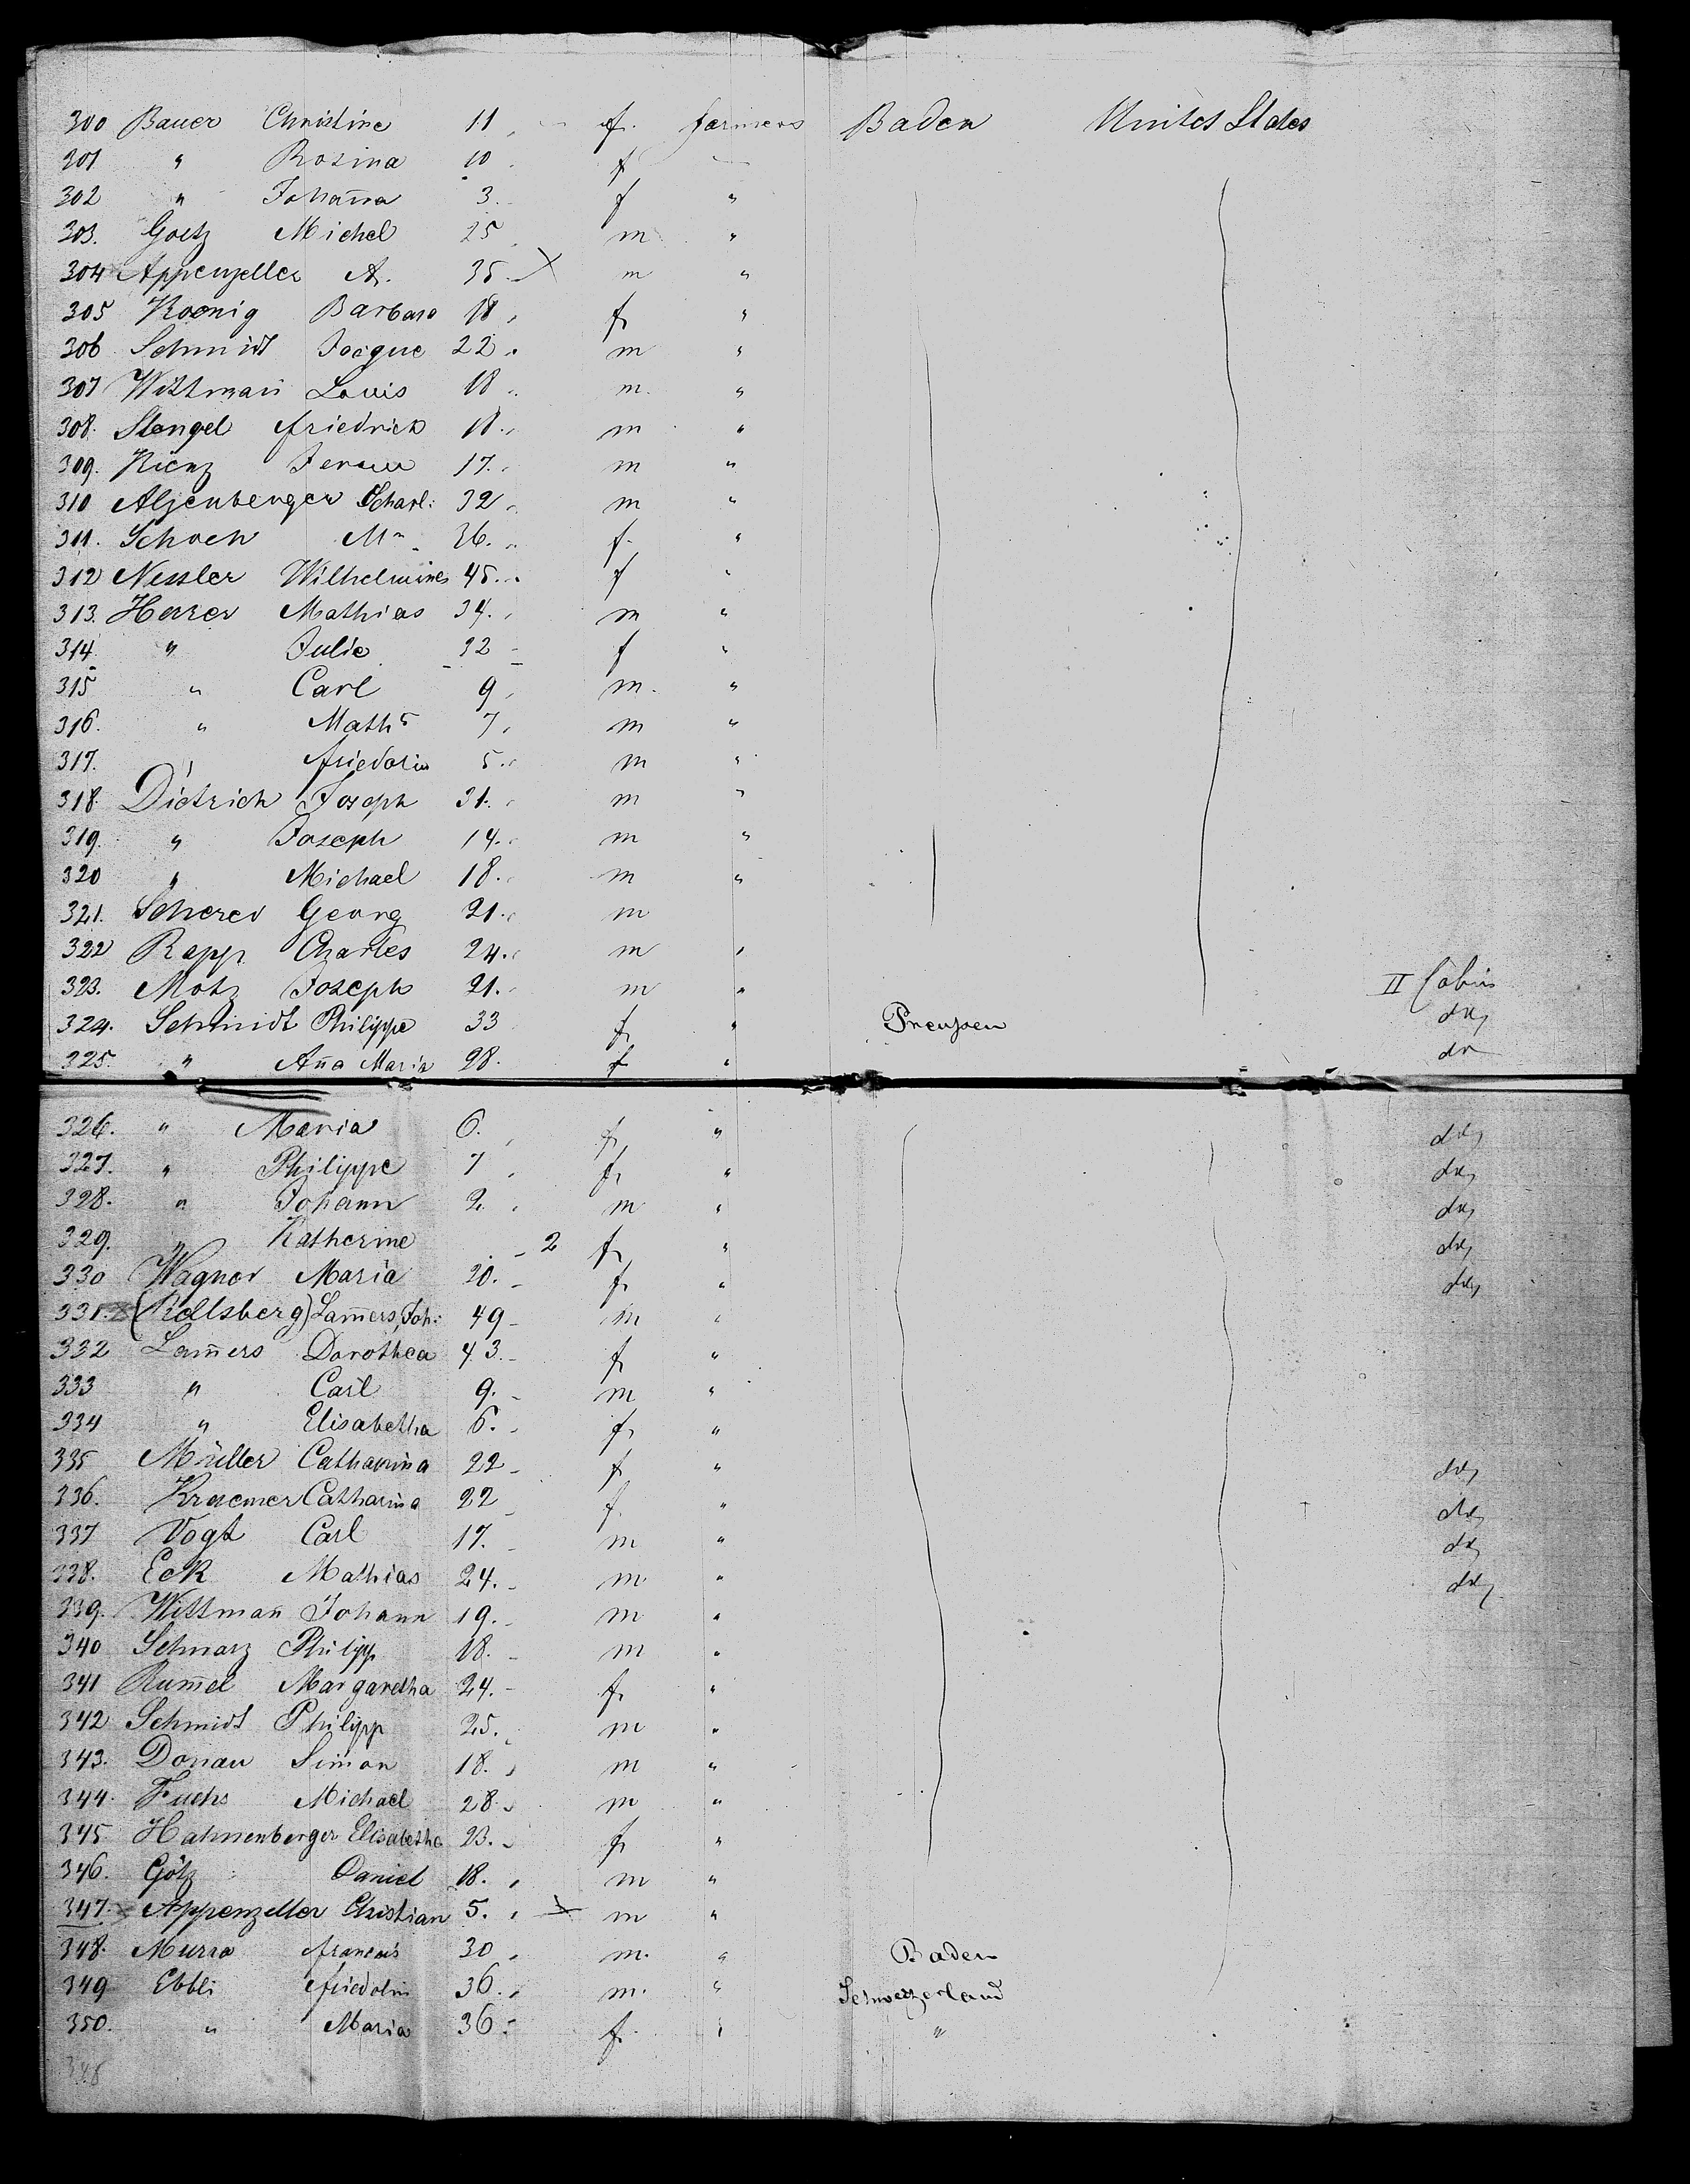 300 Bauer Christine 11 f. farmers Baden United States
301 " Rosina 10 f
302 " Johan̄a 3. f "
303. Goetz Michel 25 m "
304 Appenzeller A. 35 X m "
305 Koenig Barbara 18 f "
306 Schmidt Jacque 22 m "
307 Wittman̄ Louis 18 m. "
308. Stengel friedrich 18. m "
309. Kienz 17. m "
310 Scharl: 32 m "
311. Schoch 36. f. "
312 Nessler Wilhelmine 45. f "
313. Herrer Mathias 34. m "
314 " Julie 32 f "
315 " Carl 9 m. "
316. " Maths 7 m "
317. " friedolin 5. m "
318. Dietrich Joseph 31. m "
319. " Joseph 14. m "
320 " Michael 18. m "
321. Scherer Georg 21. m
322 Rapp Charles 24. m "
323. Motz Joseph 21. m " II Cabin
324. Schmidt Philippe 33 f " Preussen do
325. " An̄a Maria 28. f " do
326. " Maria 6. f " do
327. " Philippe 7 f " do
328. " Johann 2. m " do
329. " Katherine 2 f " do
330 Wagner Maria 20. f " do
331. (Rellsberg) Lam̄ers, Joh: 49 m "
332 Lam̄ers Dorothea 43. f "
333 " Carl 9. m "
334 " Elisabetha 6. f "
335 Müller Catharina 22 f " do
336. Kraemer Catharina 22 f. " do
337 Vogt Carl 17. m " do
338. Eck Mathias 24. m " do
339. Wittman̄ Johann 19. m "
340 Schwarz Philipp 18. m "
341 Rum̄el Margaretha 24. f "
342 Schmidt Philipp 25. m "
343. Donau Simon 18. m "
344. Fuchs Michael 28 m "
345 Hahnenberger Elisabetha 23. f "
346. Götz Daniel 18. m "
347. Appenzeller Christian 5. X m "
348. Murra francois 30 m. " Baden
349 Ebbli friedolin 36. m. " Schweizerland
350. " Maria 36. f. " "